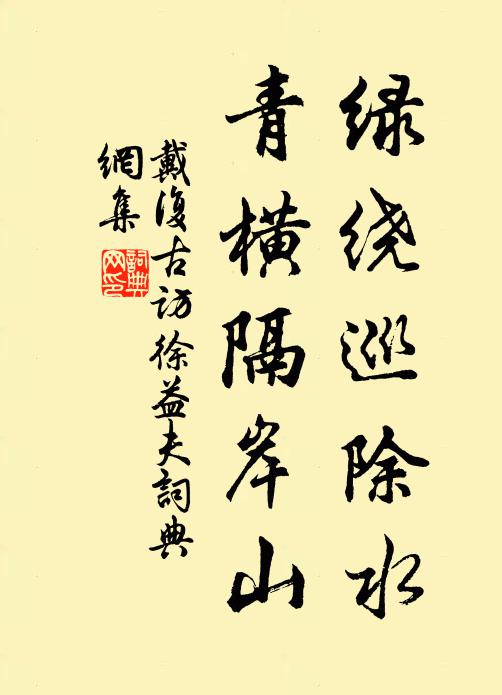 绿绕巡除水
青横隔岸山
戴復古访徐益夫詞典
網集
詞典
网印